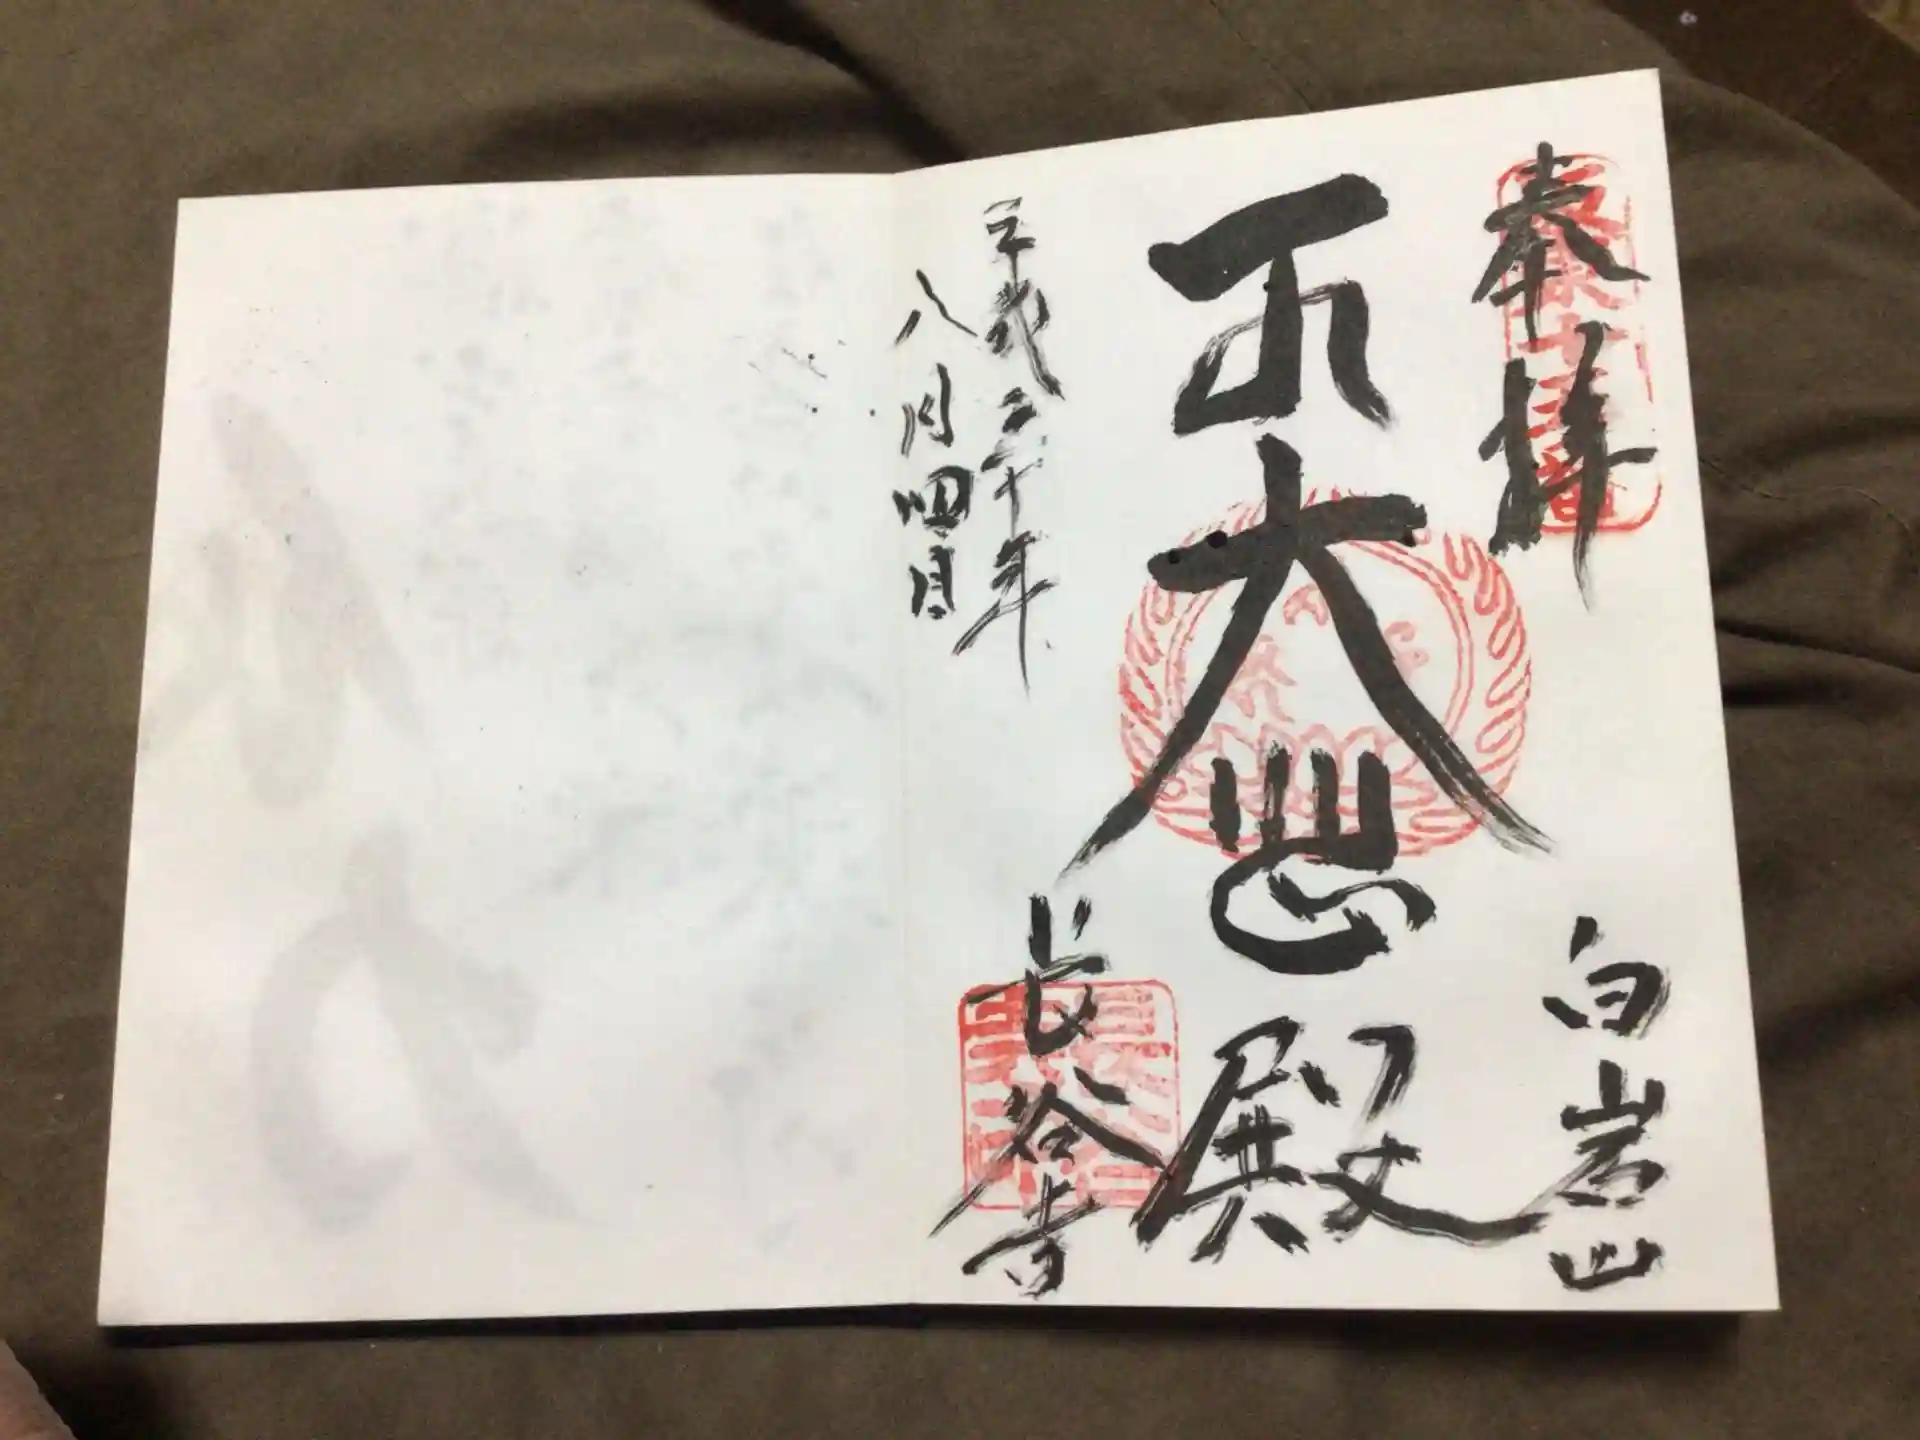 奉拝
白岩山
大悲殿
平成三十年
八月四日
長谷寺